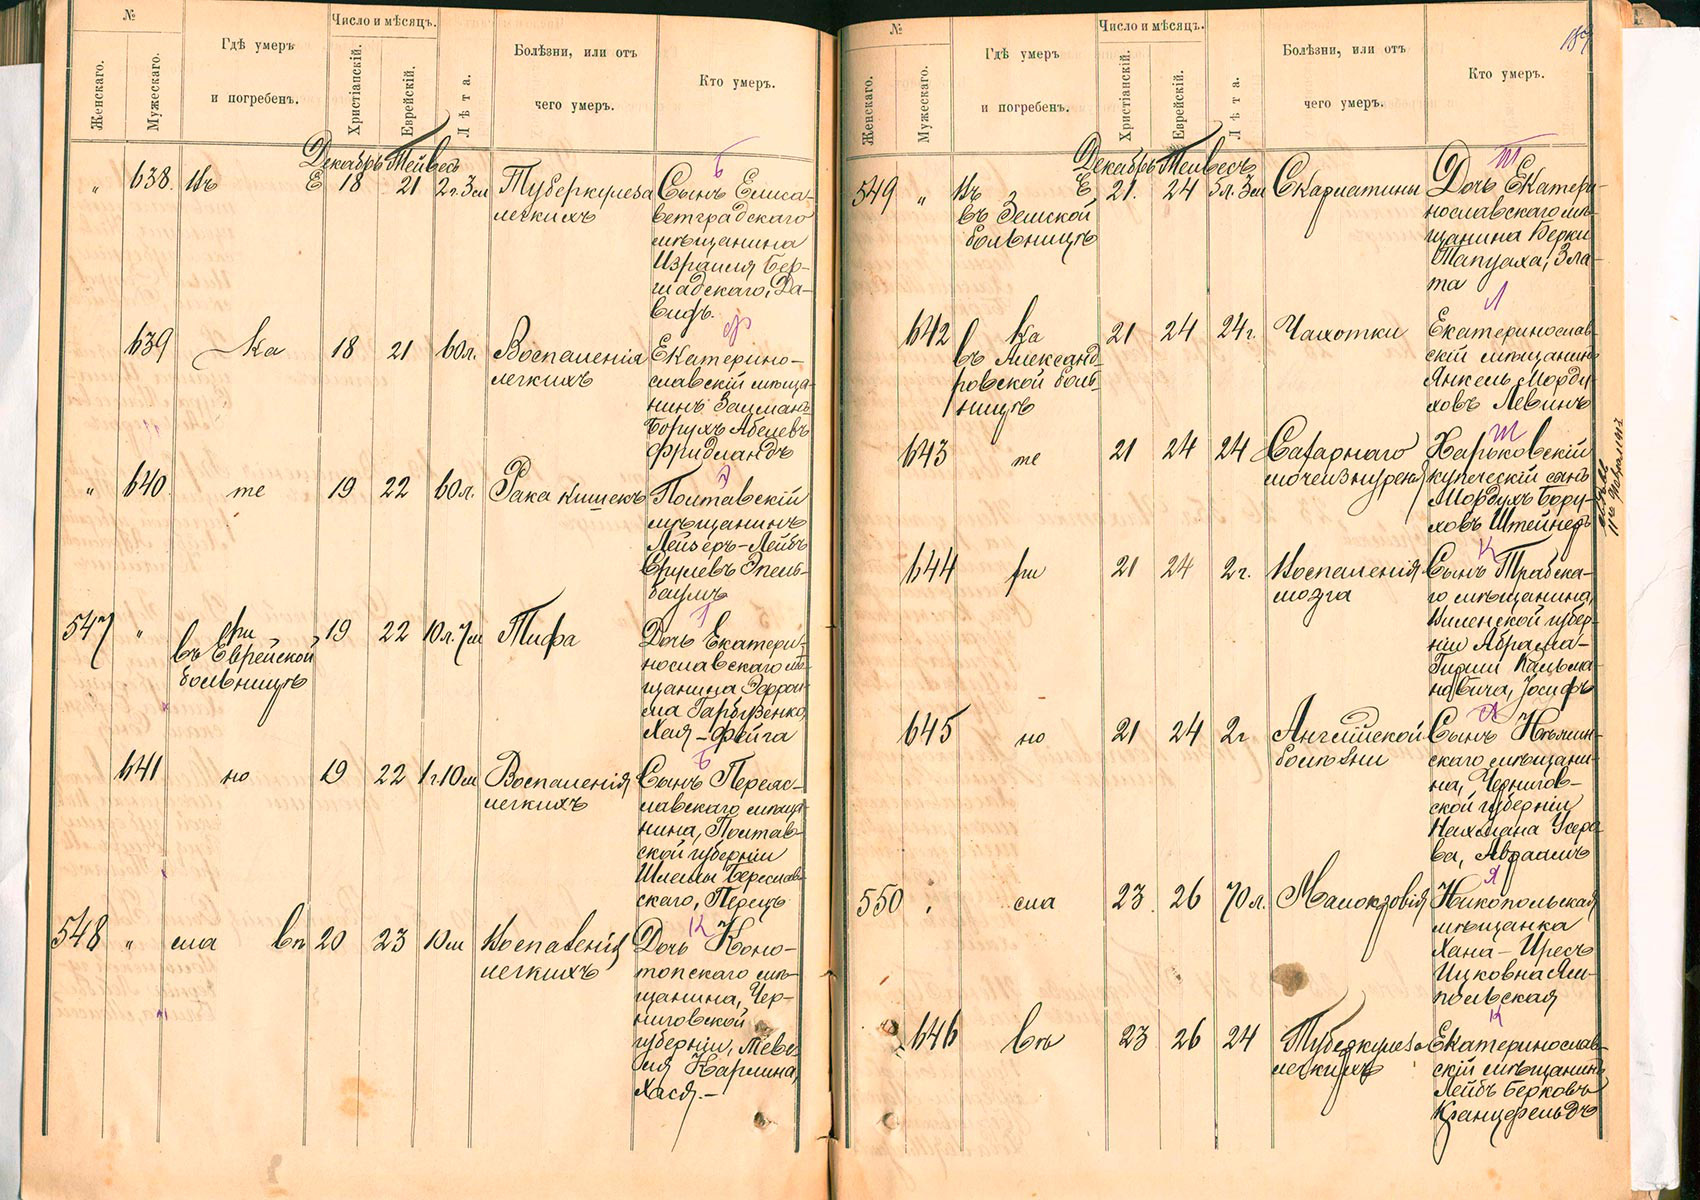 №
Женскаго.
Мужескаго.
Гдѣ умеръ
и погребенъ.
Число и мѣсяцъ.
Христіанскій.
Еврейскій.
Лѣта.
Болѣзни, или отъ
чего умеръ.
Кто умеръ.
Декабрь Тейвесъ
„ 638. Въ Е 18 21 2г.3м Туберкулеза
легкихъ
Б
Сынъ Елиса-
ветградскаго
мѣщанина
Израиля Бер-
шадскаго, Да-
видъ.
639 Ка 18 21 60л. Воспаленія
легкихъ
Ф
Екатерино-
славскій мѣща-
нинъ Залманъ
Борухъ Абелевъ
Фридландъ
„ 640 те 19 22 60л. Рака кишекъ
Э
Полтавскій
мѣщанинъ
Лейзеръ-Лейбъ
Срулевъ Эпель-
баумъ
547 „ ри 19 22 10л.7м Тифа
въ Еврейской
больницѣ
Г
Дочь Екатери-
нославскаго мѣ-
щанина Эфрои-
ма Гарбузенко,
Хая-Фейга
641 но 19 22 1г.10м Воспаленія
легкихъ
Б
Сынъ Переяс-
лавскаго мѣща-
нина, Полтав-
ской губерніи
Шлемы Береслав-
скаго, Перецъ
548 „ сла вѣ 20 23 10м Воспаленія
легкихъ
К
Дочь Коно-
топскаго мѣ-
щанина, Чер-
ниговской
губерніи,
Карлина,
Хася.-
№
Женскаго.
Мужескаго.
Гдѣ умеръ
и погребенъ.
Число и мѣсяцъ.
Христіанскій.
Еврейскій.
Лѣта.
Болѣзни, или отъ
чего умеръ.
Кто умеръ.
Декабрь Тейвесъ
549 „ Въ Е 21. 24 5л.3м Скарлатины
въ Земской
больницѣ
Т
Дочь Екатери-
нославскаго мѣ-
щанина Берки
Тапуаха, Зла-
та
642 Ка 21 24 24г. Чахотки
въ Александ-
ровской боль-
ницѣ
Л
Екатеринослав-
скій мѣщанинъ
Янкель Морду-
ховъ Левинъ
643 те 21 24 24 Сахарнаго
мочеизнуренія
Ш
Харьковскій
купеческій сынъ
Мордухъ Бору-
ховъ Штейнеръ
644 ри 21 24 2г. Воспаленія
мозга
К
Сынъ Трабска-
го мѣщанина,
Виленской губер-
ніи Абрама-
Гирши Кальма-
новича, Іосифъ
645 но 21 24 2г Англійской
болѣзни
Сынъ Нѣжин-
скаго мѣщани-
на, Чернигов-
ской губерніи
Нахмана Усеро
ва, Авраамъ
550 сла 23. 26 70л. Малокровія
Я
Никопольская
мѣщанка
Хана-Иресъ
Ицковна Ям-
польская
„ 646 вѣ 23 26 24 Туберкулеза
легкихъ
К
Екатеринослав-
скій мѣщанинъ
Лейбъ Берковъ
Кранцфельдъ